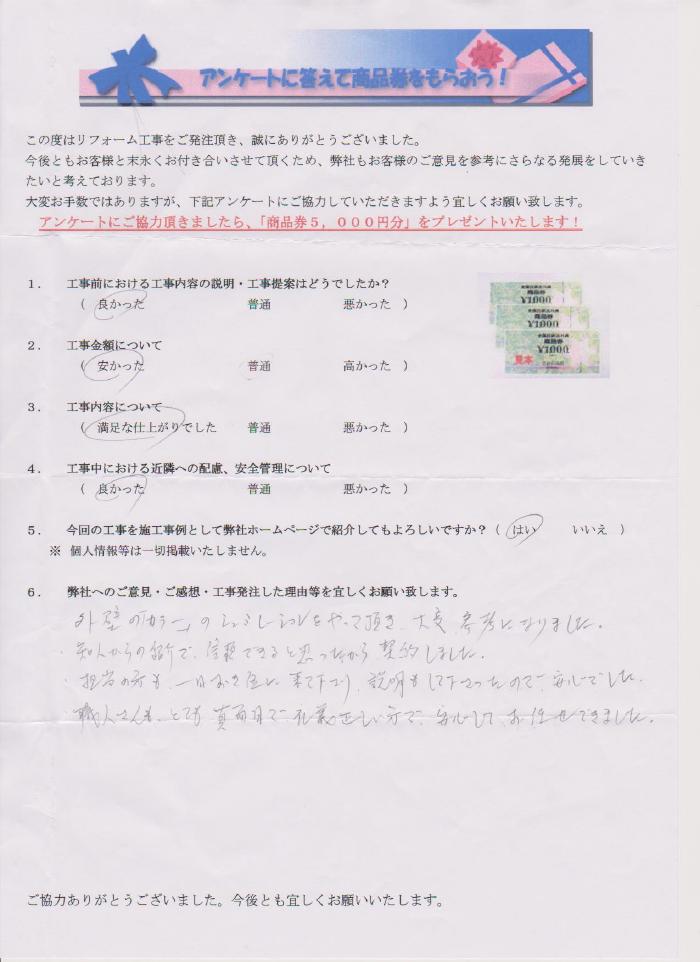 アンケートに答えて商品券をもらおう！
この度はリフォーム工事をご発注頂き、誠にありがとうございました。
今後ともお客様と末永くお付き合いさせて頂くため、弊社もお客様のご意見を参考にさらなる発展をしていき
たいと考えております。
大変お手数ではありますが、下記アンケートにご協力していただきますよう宜しくお願い致します。
アンケートにご協力頂きましたら、「商品券５，０００円分」をプレゼントいたします！
１． 工事前における工事内容の説明・工事提案はどうでしたか？
（ 良かった 普通 悪かった ）
商品券
¥1,000
商品券
¥1,000
商品券
¥1,000
見本
２． 工事金額について
（ 安かった 普通 高かった ）
３． 工事内容について
（ 満足な仕上がりでした 普通 悪かった ）
４． 工事中における近隣への配慮、安全管理について
（ 良かった 普通 悪かった ）
５． 今回の工事を施工事例として弊社ホームページで紹介してもよろしいですか？（ はい いいえ ）
※ 個人情報等は一切掲載いたしません。
６． 弊社へのご意見・ご感想・工事発注した理由等を宜しくお願い致します。
外壁の「カラー」のシュミレーションをやって頂き、大変、参考になりました。
・知人からの紹介で、信頼できると思ったから契約しました。
・担当の方も、一日おき位に来て下さり、説明もして下さったので、安心でした。
・職人さんも、とても真面目で、礼義正しい方で、安心して、お任せできました。
ご協力ありがとうございました。今後とも宜しくお願いいたします。